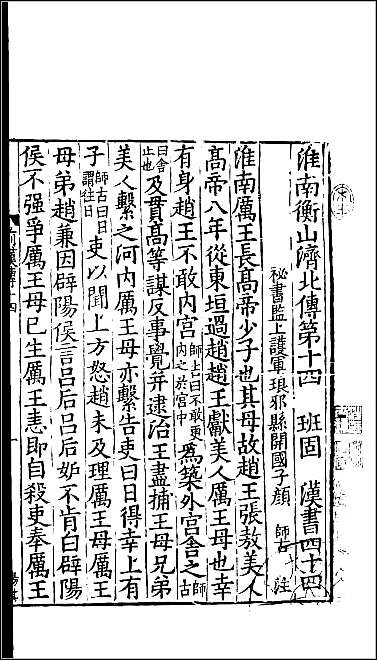 淮南衡山濟北傳第十四 班固 漢書四十四
秘書監上護軍琅邪縣開國子顏 師古 注
淮南厲王長高帝少子也其母故趙王張敖美人
高帝八年從東垣過趙趙王獻美人厲王母也幸
有身趙王不敢內宮師古曰不敢更內之於宮中爲築外宮舍之師古
曰舍止也及貫高等謀反事覺并逮治王盡捕王母兄弟
美人繫之河內厲王母亦繫告吏曰日得幸上有
子師古曰日謂往日吏以聞上方怒趙未及理厲王母厲王
母弟趙兼因辟陽侯言呂后呂后妒不肯白辟陽
侯不强爭厲王母已生厲王恚即自殺吏奉厲王